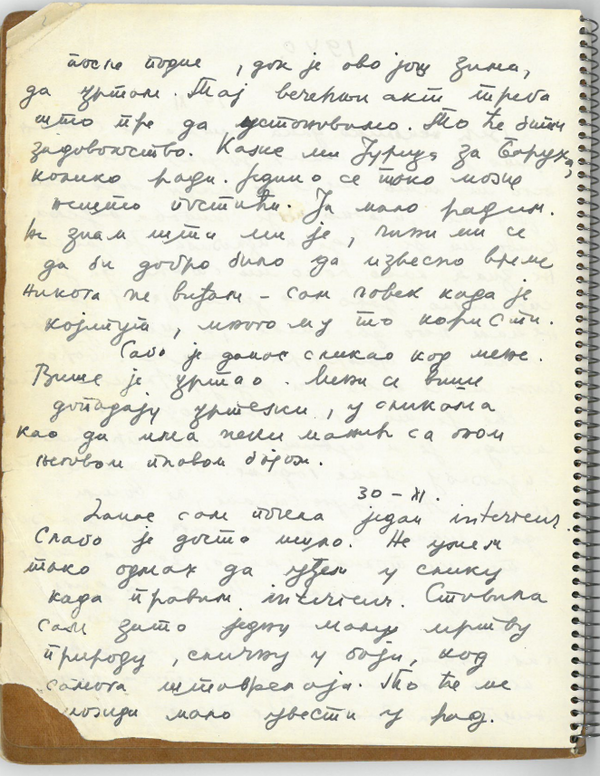 после подне, док је ово још зима,
да цртам. Тај вечерњи акт треба
што пре да установимо. То ће бити
задовољство. Каже ми Јурица за Барух,
колико ради. Једино се тако може
нешто постићи. Ја мало радим.
Не знам шта ми је, чини ми се
да би добро било да извесно време
никога не виђам – сам човек када је
који пут, много му то користи.
Сабо је данас сликао код мене.
Више је цртао. Мени се више
допадају цртежи, у сликама
као да има неки манир са оном
његовом плавом бојом.
30 – XI.
Данас сам почела један interieur.
Слабо је доста ишло. Не умем
тако одмах да уђем у слику
када правим interieur. Ставила
сам зато једну малу мртву
природу, сличну у боји, код
самога штафелаја. То ће ме
можда мало увести у рад.